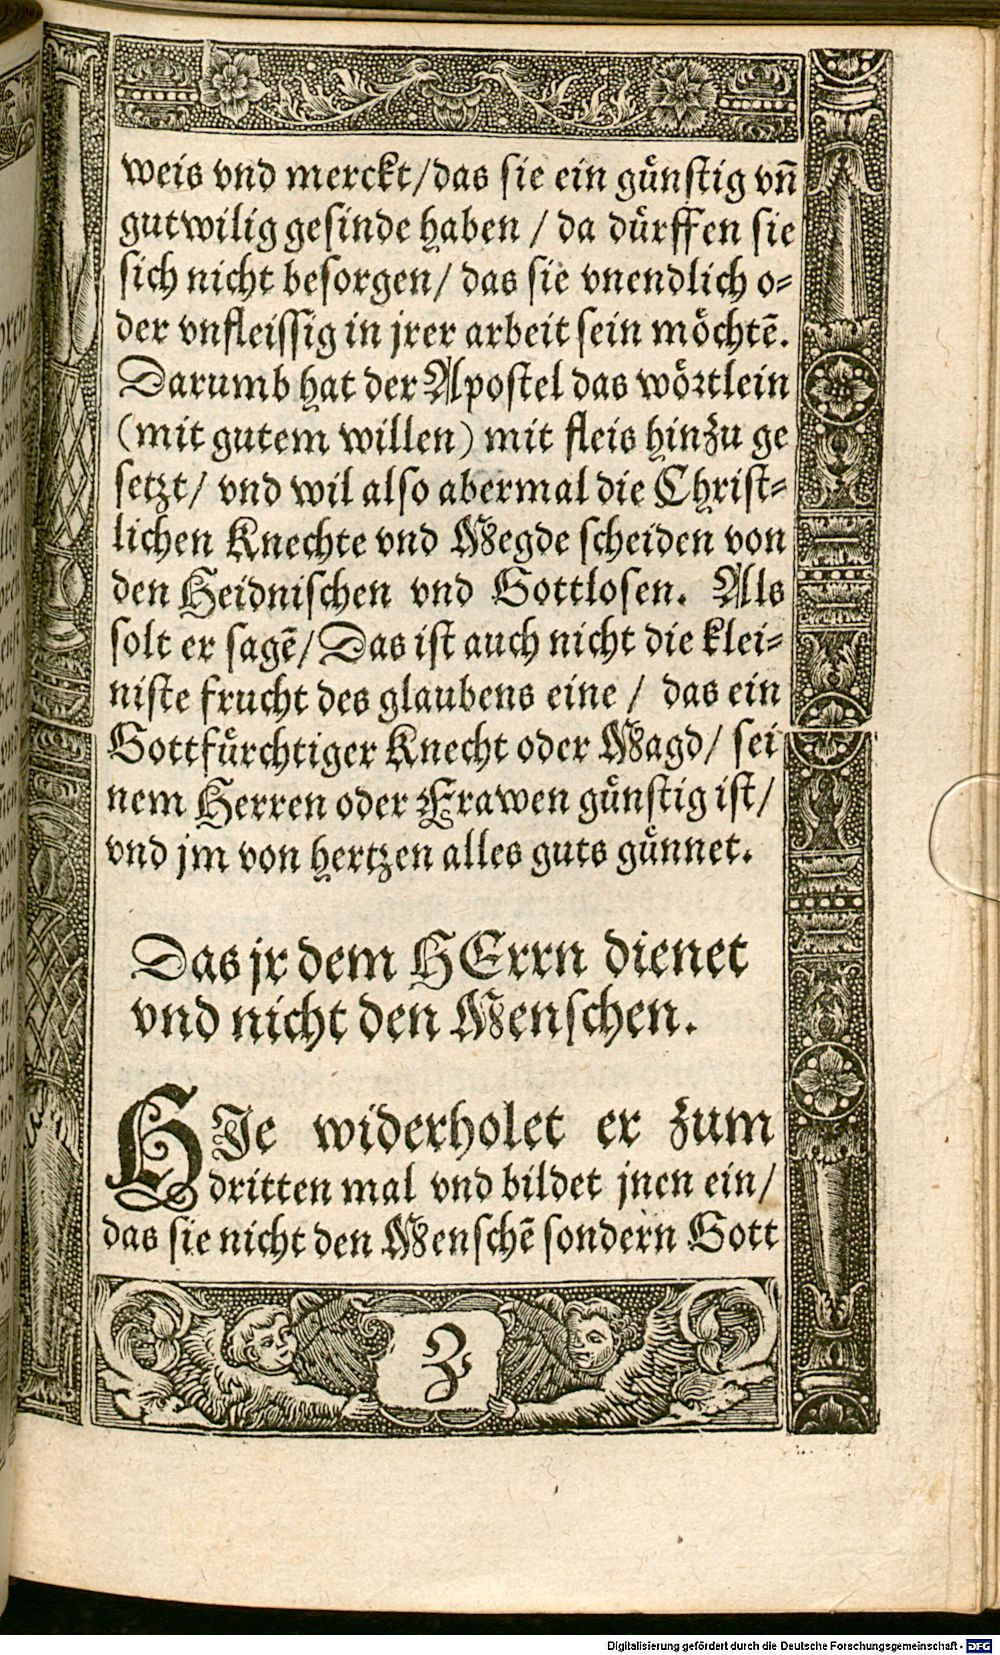 weis vnd merckt/das sie ein gůnstig vñ
gutwilig gesinde haben / da důrffen sie
sich nicht besorgen/ das sie vnendlich o⸗
der vnfleissig in jrer arbeit sein mǒchtē.
Darumb hat der Apostel das wǒrtlein
(mit gutem willen) mit fleis hinzu ge
setzt/ vnd wil also abermal die Christ⸗
lichen Knechte vnd Megde scheiden von
den Heidnischen vnd Gottlosen. Als
solt er sagē/ Das ist auch nicht die klei⸗
niste frucht des glaubens eine / das ein
Gottfůrchtiger Knecht oder Magd/ sei
nem Herren oder Frawen gůnstig ist/
vnd jm von hertzen alles guts gůnnet.
Das jr dem HErrn dienet
vnd nicht den Menschen.
HIe widerholet er zum
dritten mal vnd bildet jnen ein/
das sie nicht den Menschē sondern Gott
Z
Digitalisierung gefördert durch die Deutsche Forschungsgemeinschaft - DFG